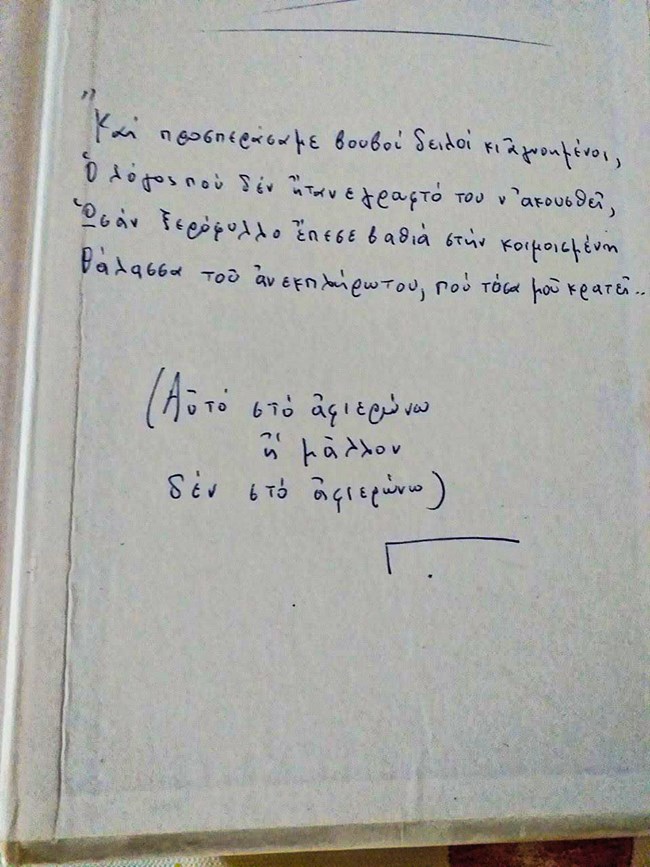 "Καί προσπεράσαμε βουβοί δειλοί κι ἀγνοημένοι,
Ὁ λόγος πού δέν ἦταν εγραφτό του ν' ἀκουσθεῖ,
Ὡσάν ξερόφυλλο ἔπεσε βαθιά στήν κοιμοισμένη
θάλασσα τοῦ ἀνεκπλήρωτου, πού τόσα μοῦ κρατεῖ..
(Αὐτό στό ἀφιερώνω
ἤ μᾶλλον
δέν στό ἀφιερώνω)
Γ.